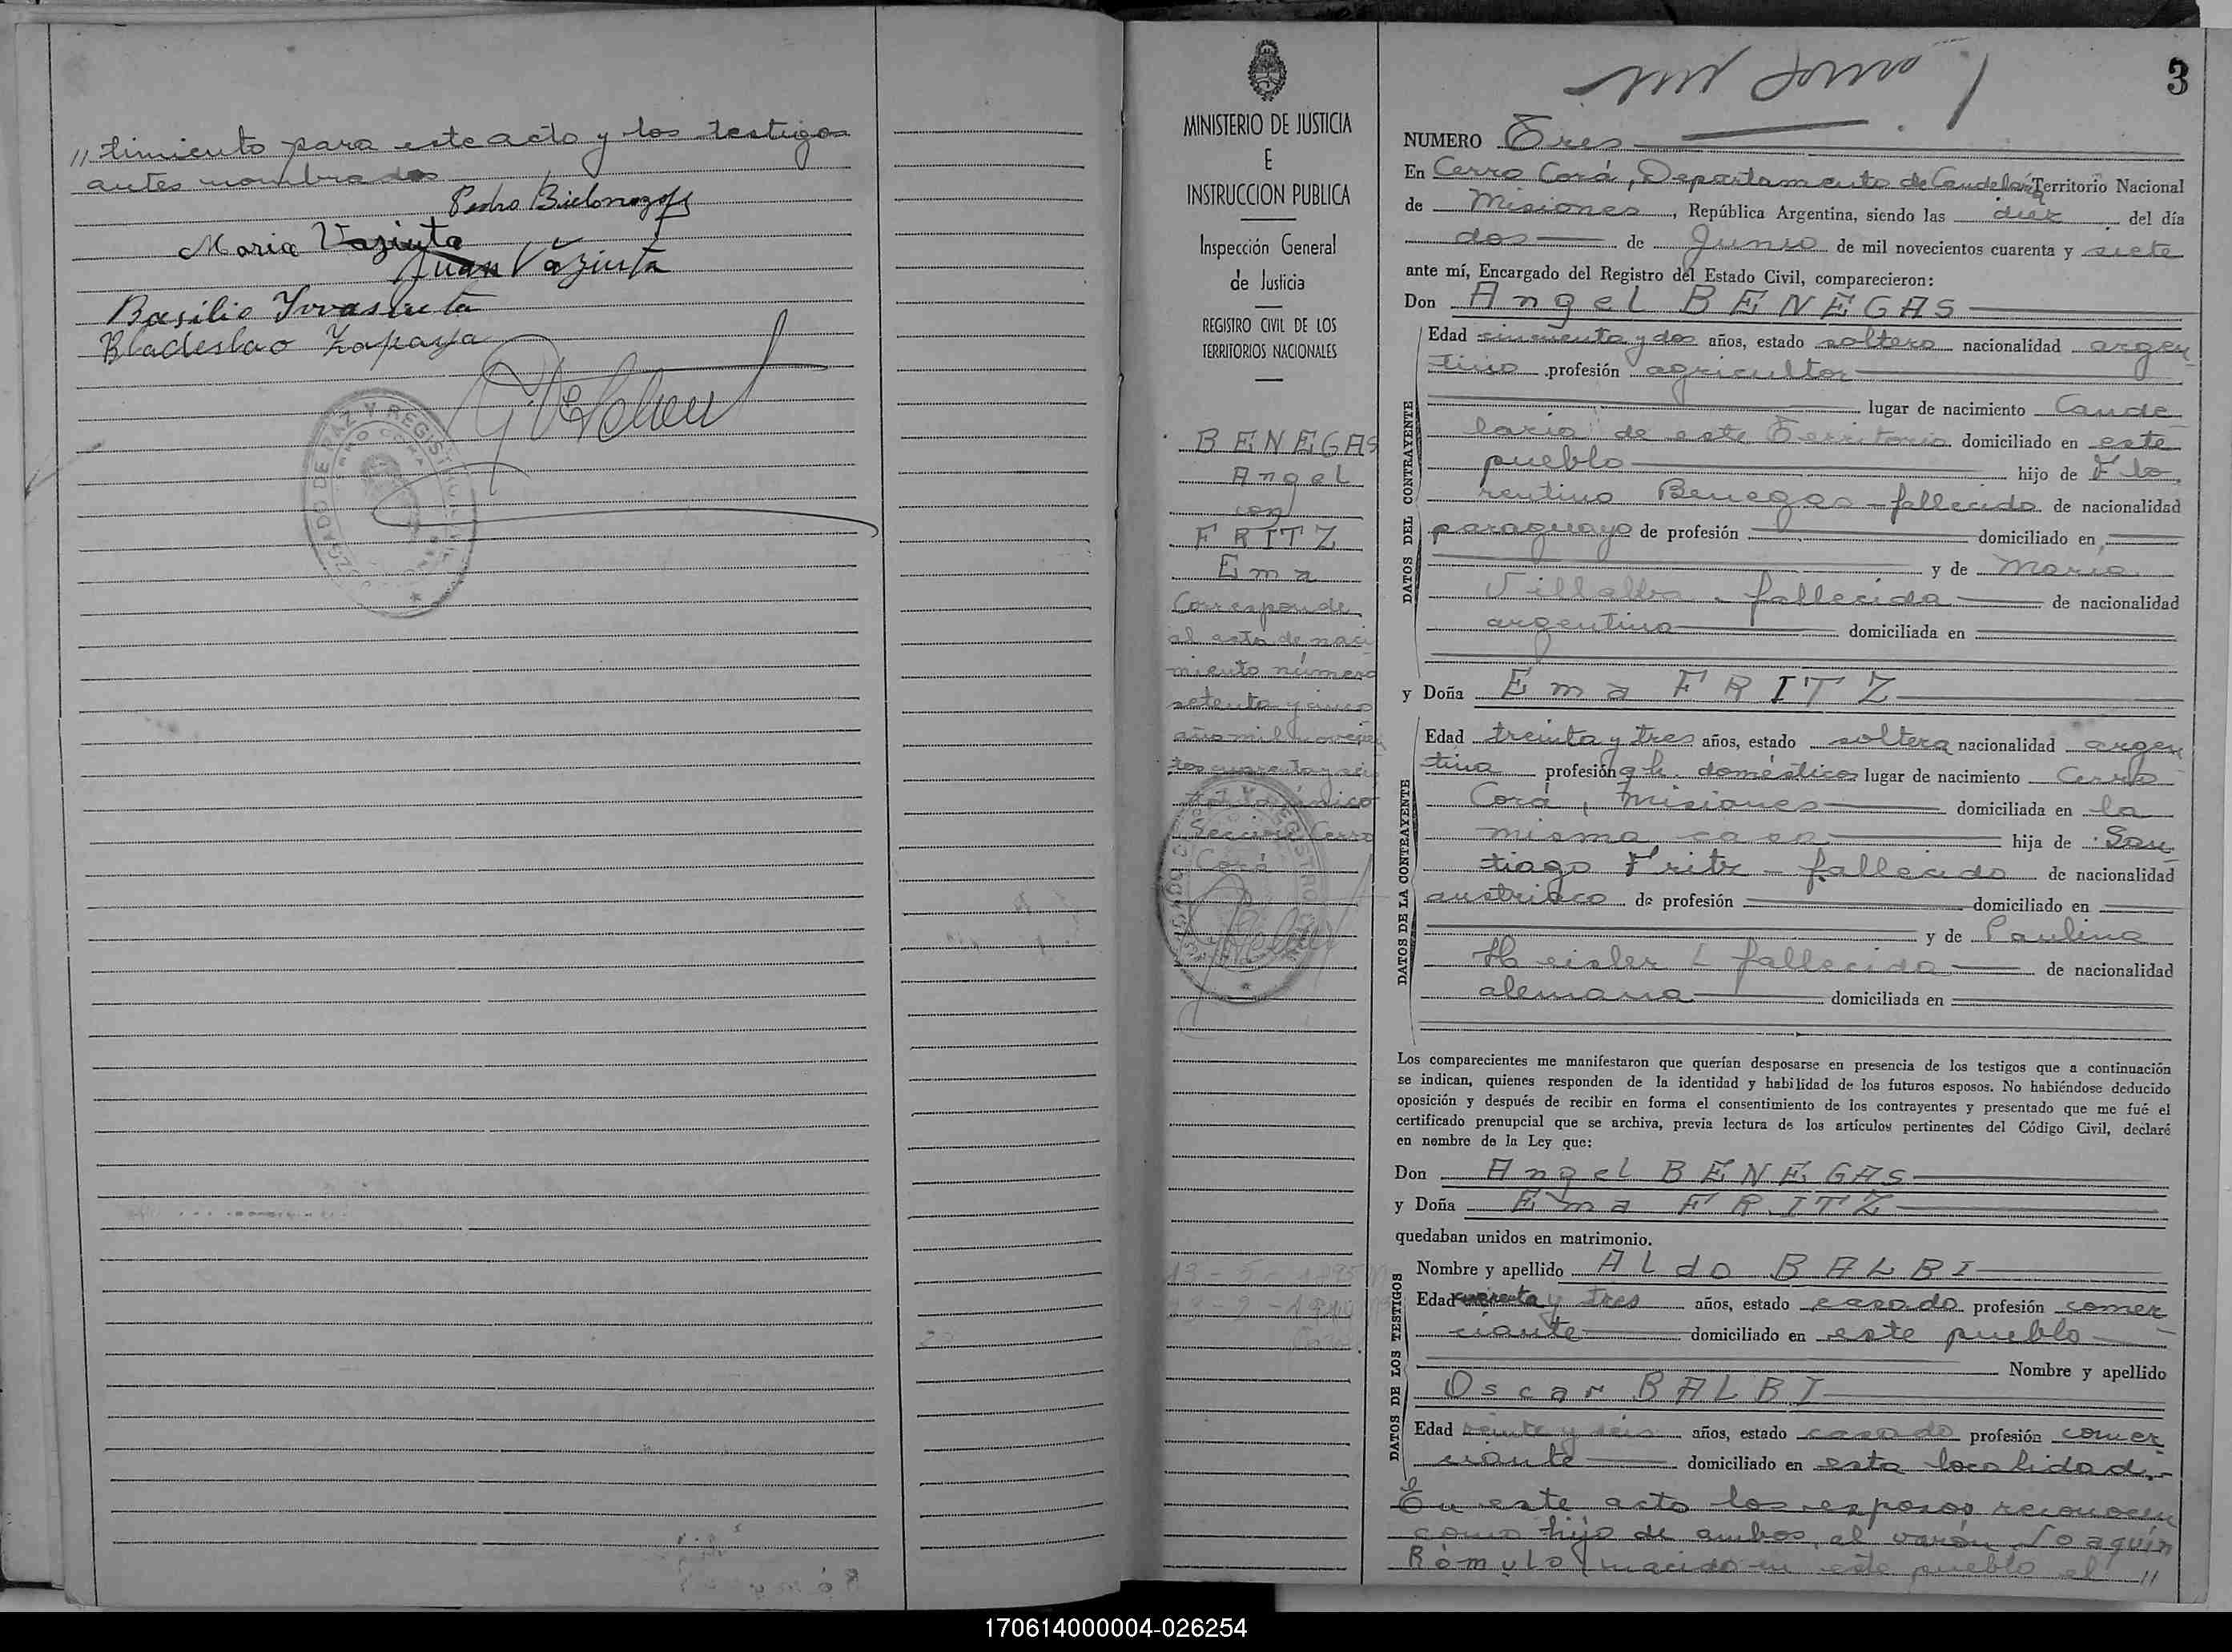 // timiento para este acto y los testigos
antes nombrados
Pedro
Maria Vaziuta
Juan Vaziuta
Basilio
Bladeslao Zapaya
MINISTERIO DE JUSTICIA
E
INSTRUCCION PUBLICA
Inspección General
de Justicia
REGISTRO CIVIL DE LOS
TERRITORIOS NACIONALES
BENEGAS
Angel
con
FRITZ
Ema
Corresponde
al acta de naci
miento número
setenta y cinco
año mil novecien
tos cuarenta y seis
único
Sección Cerro
Corá
3
NUMERO Tres
En Cerro Corá, Departamento de Candelaria Territorio Nacional
de Misiones, República Argentina, siendo las diez del día
dos de Junio de mil novecientos cuarenta y siete
ante mí, Encargado del Registro del Estado Civil, comparecieron:
Don Angel BENEGAS
DATOS DEL CONTRAYENTE
Edad cincuenta y dos años, estado soltero nacionalidad argen
tino profesión agricultor
lugar de nacimiento Cande
laria de este Territorio domiciliado en este
pueblo hijo de Flo
rentino Benegas - fallecido de nacionalidad
paraguayo de profesión domiciliado en
y de Maria
Villalba - fallecida de nacionalidad
argentina domiciliada en
y Doña Ema FRITZ
DATOS DE LA CONTRAYENTE
Edad treinta y tres años, estado soltera nacionalidad argen
tina profesión q h. domésticos lugar de nacimiento Cerro
Corá, Misiones domiciliada en la
misma casa hija de San
tiago Fritz - fallecido de nacionalidad
austriaco de profesión domiciliado en
y de Paulina
Heisler - fallecida de nacionalidad
alemana domiciliada en
Los comparecientes me manifestaron que querían desposarse en presencia de los testigos que a continuación
se indican, quienes responden de la identidad y habilidad de los futuros esposos. No habiéndose deducido
oposición y después de recibir en forma el consentimiento de los contrayentes y presentado que me fué el
certificado prenupcial que se archiva, previa lectura de los artículos pertinentes del Código Civil, declaré
en nombre de la Ley que:
Don Angel BENEGAS
y Doña Ema FRITZ
quedaban unidos en matrimonio.
DATOS DE LOS TESTIGOS
Nombre y apellido ALdo BALBI
Edad cuarenta y tres años, estado casado profesión comer
ciante domiciliado en este pueblo
Nombre y apellido
Oscar BALBI
Edad veinte y seis años, estado casado profesión comer
ciante domiciliado en esta localidad.-
En este acto los esposos reconocen
como hijo de ambos, al varón Joaquín
Rómulo, nacido en este pueblo el //
170614000004-026254